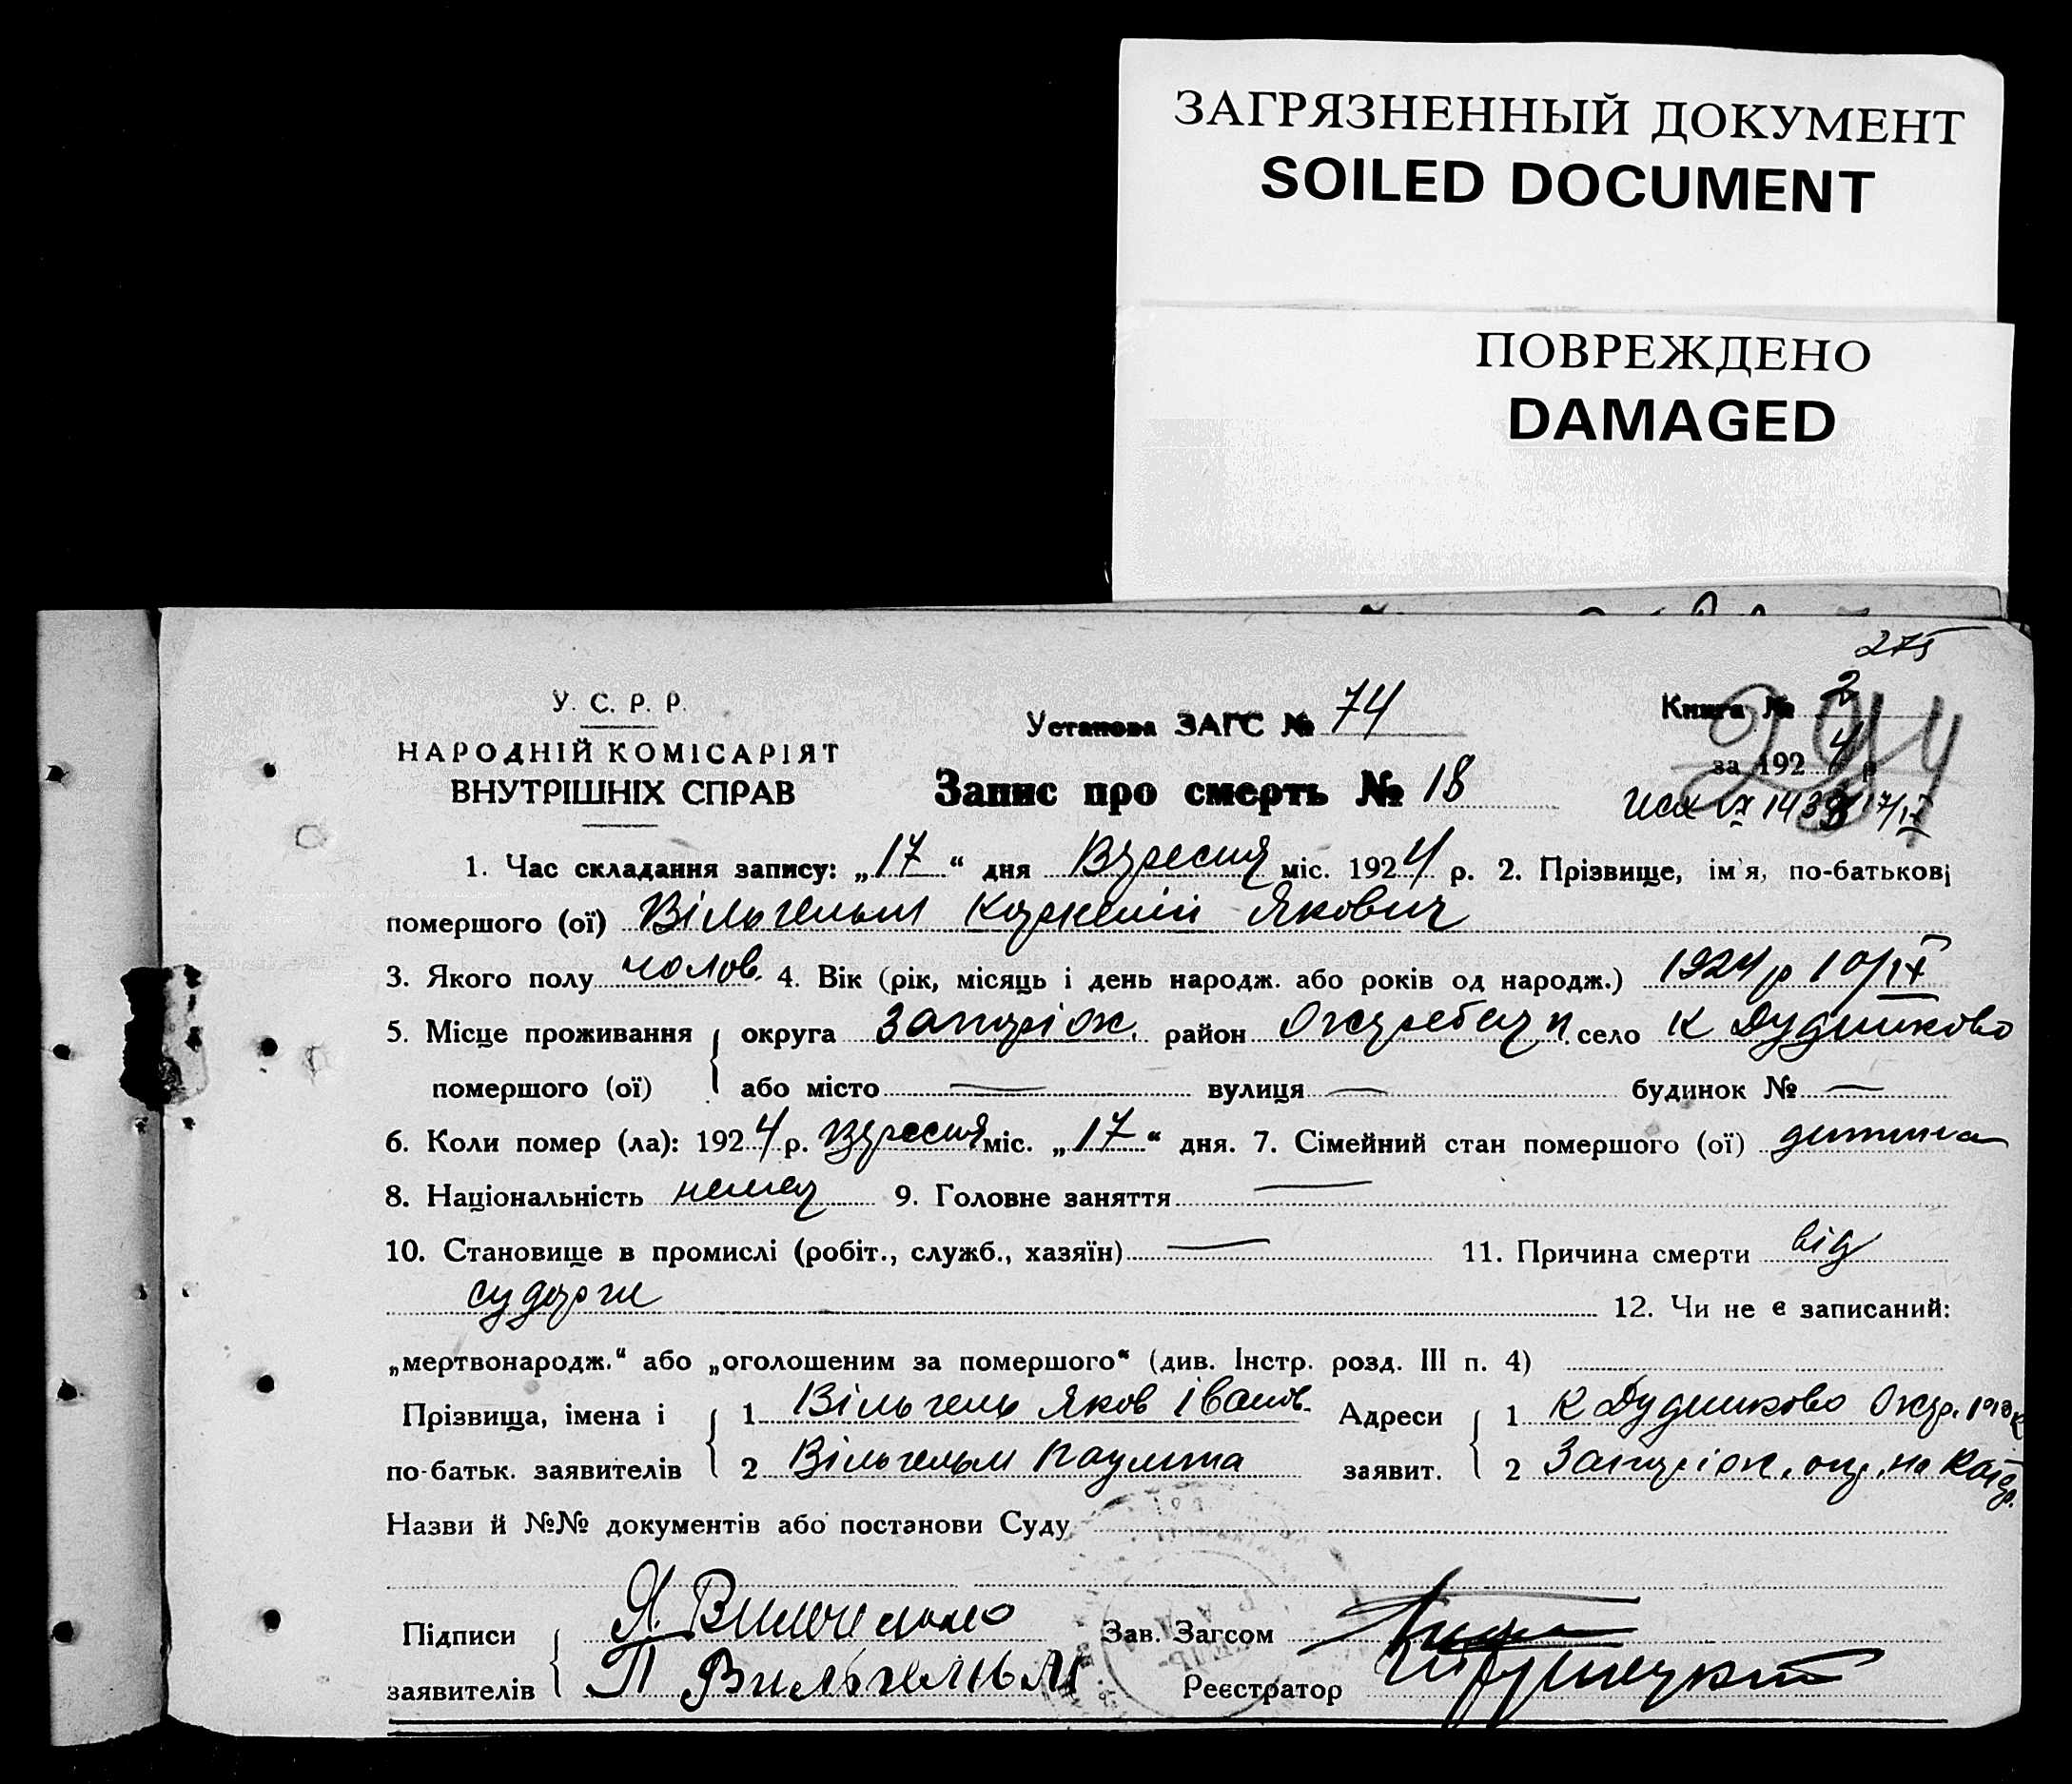 ЗАГРЯЗНЕННЫЙ ДОКУМЕНТ
SOILED DOCUMENT
ПОВРЕЖДЕНО
DAMAGED
275
У. С. Р. Р.
НАРОДНІЙ КОМІСАРІЯТ
ВНУТРІШНІХ СПРАВ
Установа ЗАГС № 74
Книга № 2
за 1924 р
Запис про смерть № 18
1. Час складання запису: „17“ дня Вересня міс. 1924 р. 2. Прізвище, ім'я, по-батькові
помершого (ої) Вільгельм Корнелій Якович
3. Якого полу чолов. 4. Вік (рік, місяць і день народж. або років од народж.) 1924 р 10/IX
5. Місце проживання округа Запоріж. район село К Дудниково
помершого (ої) або місто — вулиця — будинок № —
6. Коли помер (ла): 1924 р. Вересня міс. „17“ дня. 7. Сімейний стан помершого (ої) дитина
8. Національність немец 9. Головне заняття —
10. Становище в промислі (робіт., служб., хазяїн) — 11. Причина смерти від
судорги
12. Чи не є записаний:
„мертвонародж.“ або „оголошеним за помершого“ (див. Інстр. розд. III п. 4)
Прізвища, імена і 1 Вільгель Яков Іванов. Адреси 1 К Дудниково
по-батьк. заявителів 2 Вільгельм заявит. 2 Запоріж.
Назви й №№ документів або постанови Суду
Підписи Я. Зав. Загсом
заявителів П Вильгельм Реєстратор